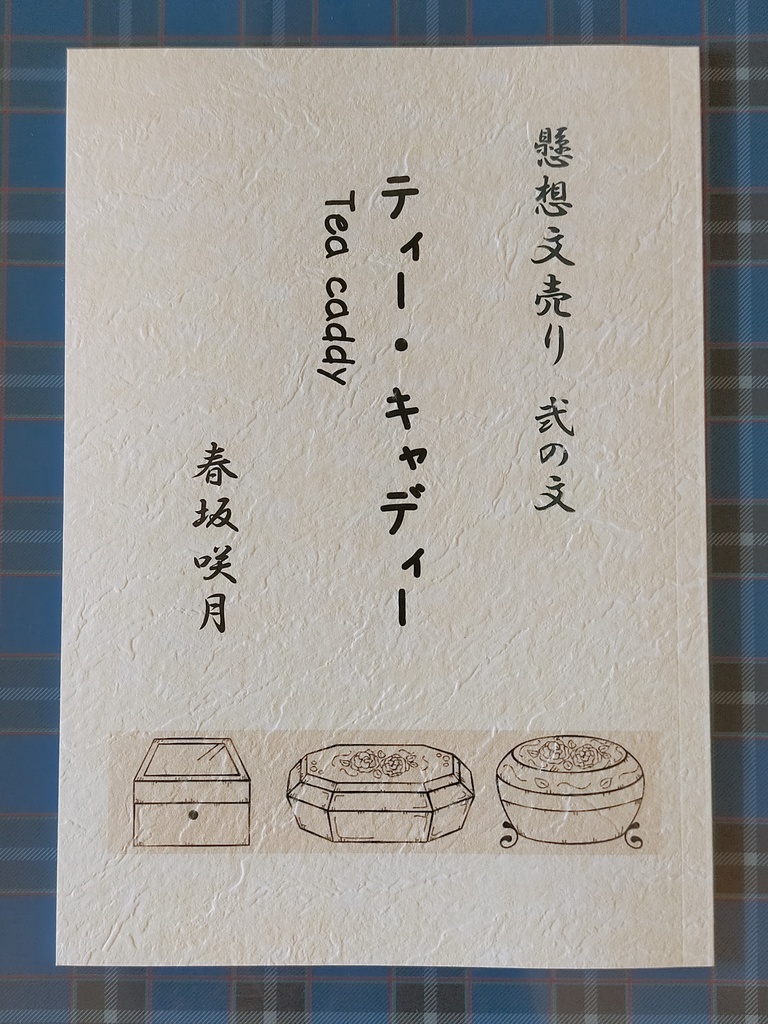 懸想文売り 弐の文
ティー・キャディー
Tea caddy
春坂咲月